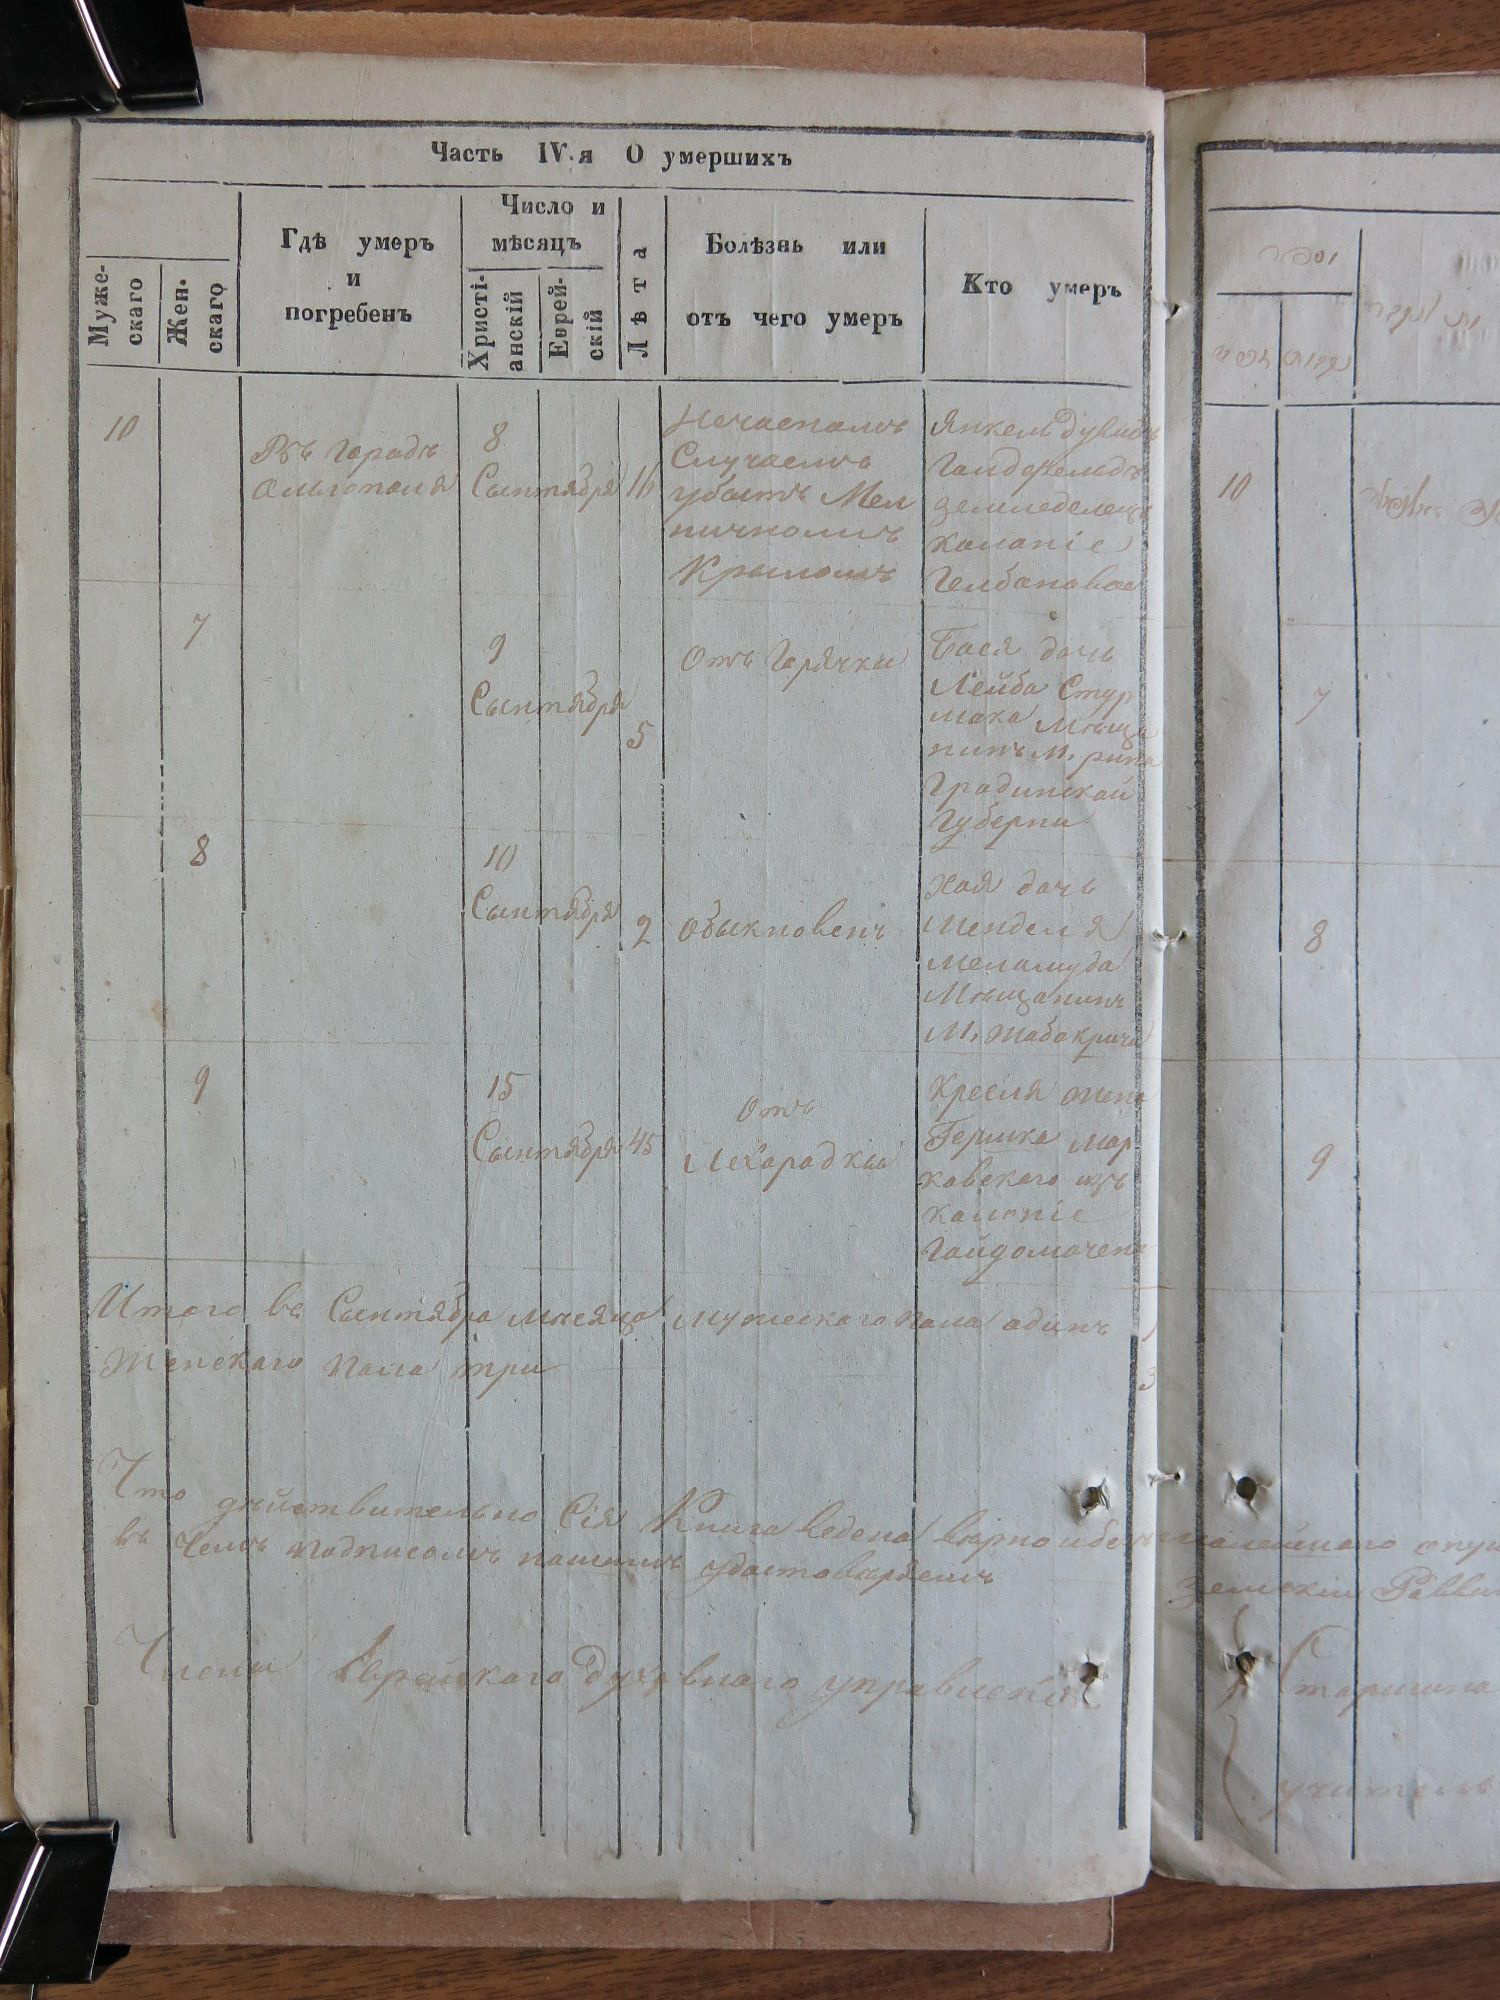 Часть IV.я О умершихъ
Муже-
скаго
Жен-
скаго
Гдѣ умеръ
и
погребенъ
Число и
мѣсяцъ
Христі-
анскій
Еврей-
скій
Лѣта
Болѣзнь или
отъ чего умеръ
Кто умеръ
10
Въ Городѣ
Ольгополя
8
Сынтября
16
Нечаеномъ
Случаемъ
убытъ Мел
ничномъ
Крыломъ
Янкель Дувидъ
Голдфельдъ
земледелецъ
Колоніе
Гелбоновое
7
9
Сынтября
5
Отъ Горячки
Бася дочь
Лейба Стур
мака Мѣща
нинъ М.
Градинской
Губерни
8
10
Сынтября
2
обыкновенъ
Хая дочь
Менделя
Меламуда
Мѣщанинъ
М. Жабокрича
9
15
Сынтября
45
Отъ
Лехорадки
Кресля жена
Гершка Мар
ковского изъ
Колоніе
Итого въ Сынтября мѣсяца мужескаго пола одинъ 1
Женскаго пола три 3
Что дѣйствительно Сія Книга ведена вѣрно и безъ малейшаго
въ чемъ подписомъ нашимъ удостовѣряемъ
Члены Еврейского Духовного управленія
10
7
8
9
Старшина
учитель